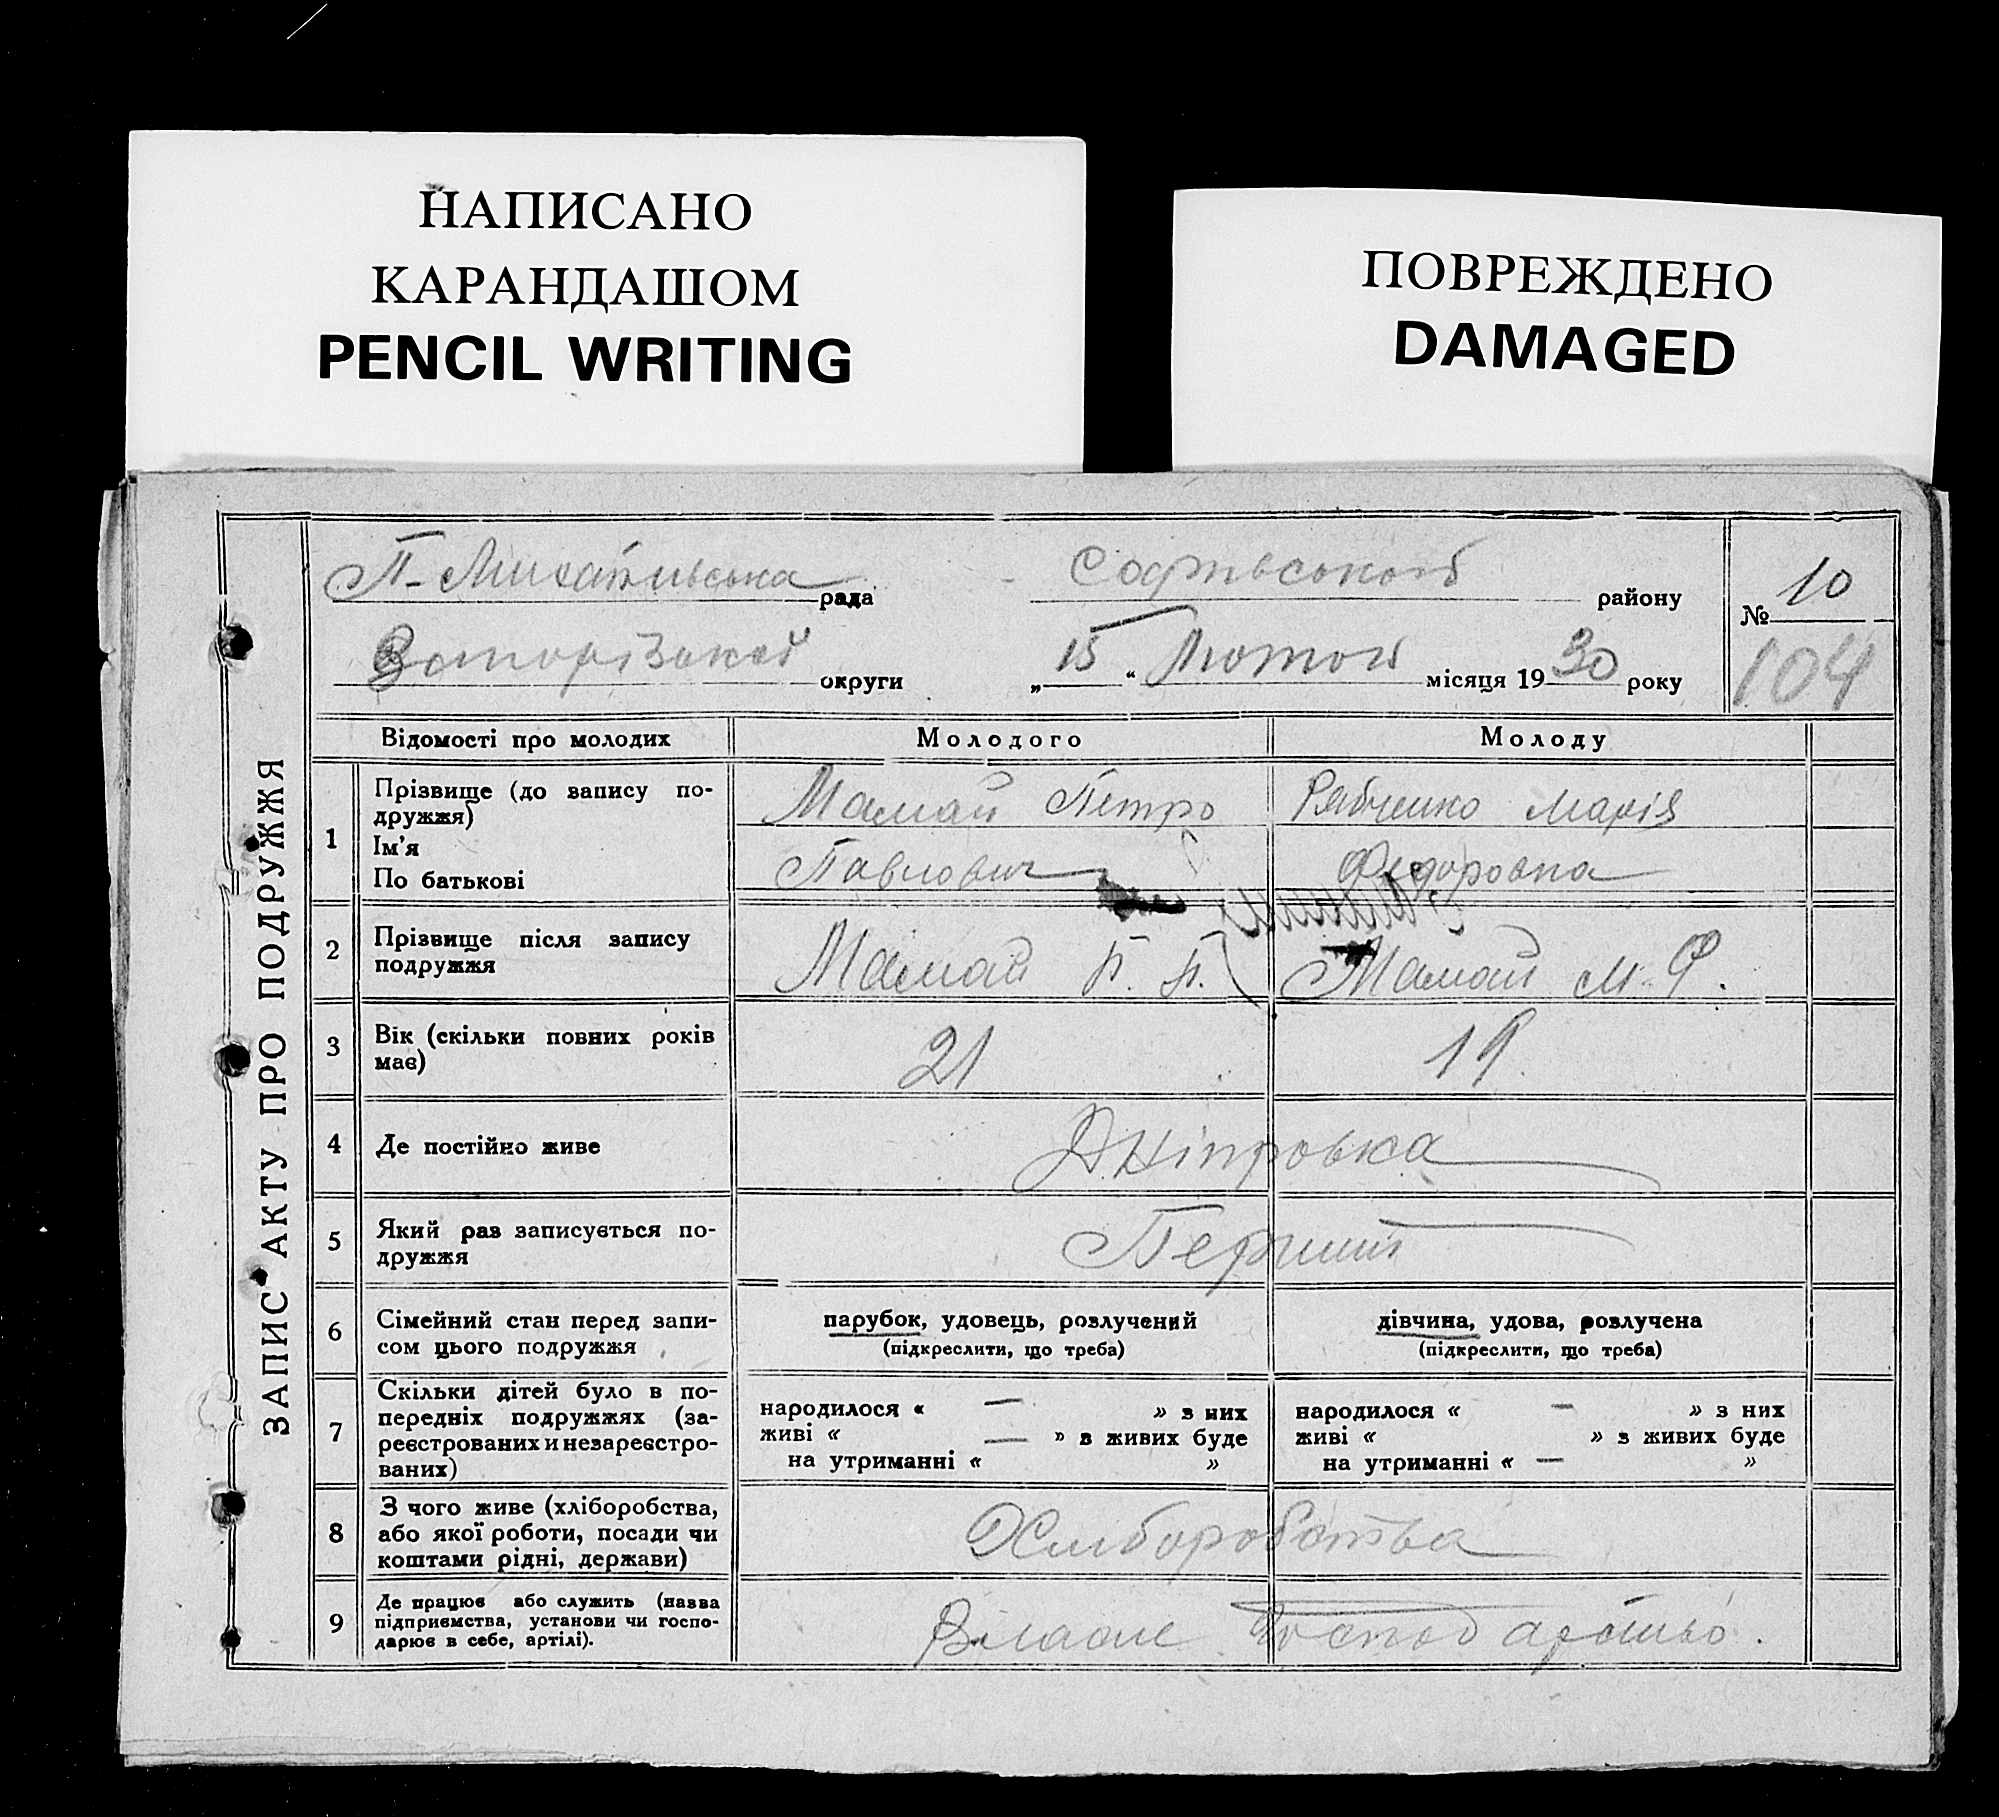 НАПИСАНО
КАРАНДАШОМ
PENCIL WRITING
ПОВРЕЖДЕНО
DAMAGED
ЗАПИС АКТУ ПРО ПОДРУЖЖЯ
П-Михайлівська рада Софіівськоі району № 10
Запорізькоі округи „15“ Лютоги місяця 1930 року 104
Відомості про молодих Молодого Молоду
1 Прізвище (до запису по-
дружжя)
Ім'я
По батькові
Мамай Петро
Павлович
Рябченко Марія
Федоровна
2 Прізвище після запису
подружжя
Мамай П. П. Мамай М. Ф.
3 Вік (скільки повних років
має)
21 19
4 Де постійно живе Дніпровка
5 Який раз записується по-
дружжя
Перший
6 Сімейний стан перед запи-
сом цього подружжя
парубок, удовець, розлучений
(підкреслити, що треба)
дівчина, удова, розлучена
(підкреслити, що треба)
7 Скільки дітей було в по-
передніх подружжях (за-
реєстрованих и незареєстро-
ваних)
народилося « — » з них
живі « — » з живих буде
на утриманні « »
народилося « — » з них
живі « » з живих буде
на утриманні « — »
8 З чого живе (хліборобства,
або якої роботи, посади чи
коштами рідні, держави)
Хлиборобства
9 Де працює або служить (назва
підприємства, установи чи госпо-
дарює в себе, артілі).
Власне Господарство.